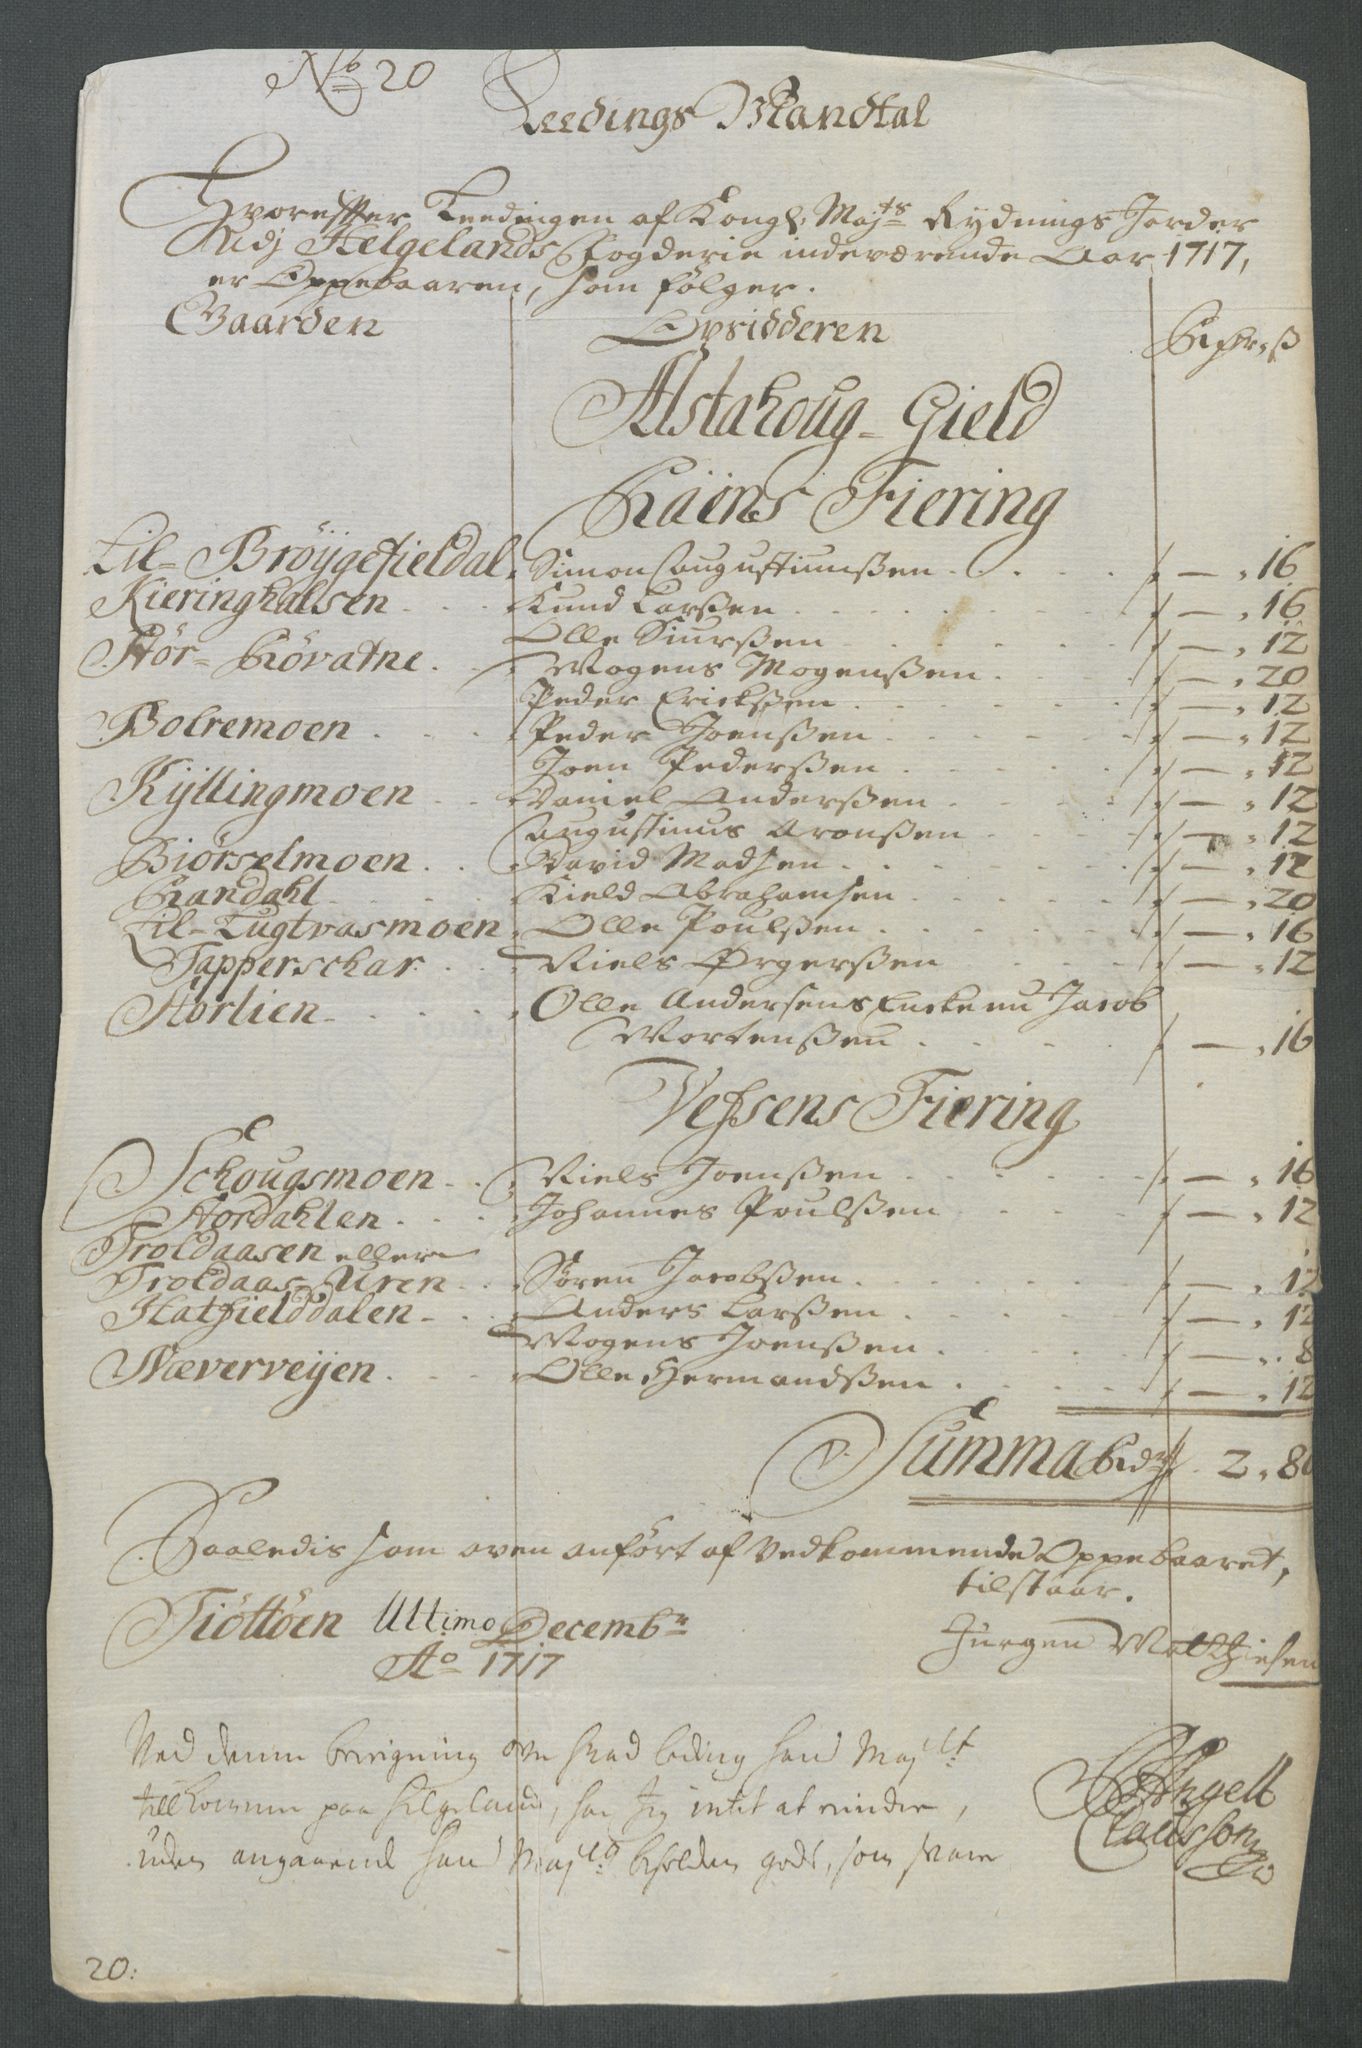 No 20
Leedings Mandtal
Hvorefter Leedingen af Kongl: Majts Rydnings Jorder
Udj Helgelands Fogderie indeværende Aar 1717,
er Oppebaaren, som følger.
Gaarden Opsidderen Rixdr. ß
Alstahoug - Gield
Ranens Fiering
Lil- Bröygefieldal. Simon Augustinußen . . . . - „ 16
Kieringhalsen . . . Knud Larßen . . . . - „ 16
Olle Siurßen . . . . - „ 12
Stör- Rövatne . . Mogens Mogenßen . . . . - „ 20
Peder Erickßen . . . . - „ 12
Bolremoen . . . Peder Joenßen . . . . - „ 12
Joen Pederßen . . . . - „ 12
Kyllingmoen . . Daniel Anderßen . . . . - „ 12
Augustinus Aronßen . . . . - „ 12
Biörselmoen . . David Madsen . . . . - „ 12
Randahl . . . . Kield Abrahamsen . . . . - „ 20
Lil- Lugtvasmoen . Olle Poulßen . . . . - „ 16
Tapperschar . . . Niels Ørgerßen . . . . - „ 12
Storlien . . . . Olle Andersens Encke nu Jacob
Mortenßen . . . . - „ 16
Vefsens Fiering
Schougsmoen . . Niels Joenßen . . . . - „ 16
Nordahlen . . . Johannes Poulßen . . . . - „ 12
Troldaasen eller
Troldaas Uren . . Sören Jacobßen . . . . - „ 12
Hatfielddalen . . Anders Larßen . . . . - „ 12
Mogens Joenßen . . . . - „ 8
Næverveijen . . . Olle Hermandßen . . . . - „ 12
Summa Rdr 2 „ 80
Saaledis som oven anfört af Vedkommende Oppebaaret,
tilstaar.
Tiöttöen Ultimo Decembr Jurgen Matthiesen
Ao 1717
Ved denne beregning om hvad leding hans Majtt
tilkommer paa Helgeland, har Jeg intet at erindre,
uden angaaende hans Majtts beholden gods, som svare
Angell
Claussøn
20: